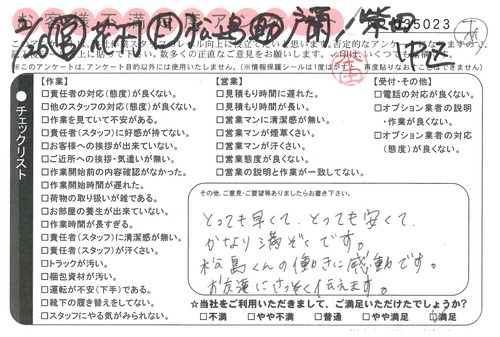 035023
このアンケートは、アンケート目的以外には使用いたしません。(※情報保護シールは1度はがすと、再度貼りなおすことはできません)
チェックリスト
【作業】
□責任者の対応(態度)が良くない。
□他のスタッフの対応(態度)が良くない。
□作業を見ていて不安がある。
□責任者(スタッフ)に好感が持てない。
□お客様への挨拶が出来ていない。
□ご近所への挨拶・気遣いが無い。
□作業開始前の内容確認がなかった。
□作業開始時間が遅れた。
□荷物の取り扱いが雑である。
□お部屋の養生が出来ていない。
□作業時間が長すぎる。
□責任者(スタッフ)に清潔感が無い。
□責任者(スタッフ)が汗くさい。
□トラックが汚い。
□梱包資材が汚い。
□運転が不安(下手)である。
□靴下の履き替えをしてない。
□スタッフにやる気がみられない。
【営業】
□見積もり時間に遅れた。
□見積もり時間が長い。
□営業マンに清潔感が無い。
□営業マンが煙草くさい。
□営業マンが汗くさい。
□営業態度が良くない。
□営業の説明と作業が一致してない。
【受付・その他】
□電話の対応が良くない。
□オプション業者の説明
・作業が良くない。
□オプション業者の対応
(態度)が良くない。
その他、ご意見・ご要望等ありましたらお書き下さい。
とっても早くて、とっても安くて、
かなり満ぞくです。
松島くんの働きに感動です。
お友達にさっそく伝えます。
☆当社をご利用いただきまして、ご満足いただけたでしょうか?
□不満 □やや不満 □普通 □やや満足 □満足